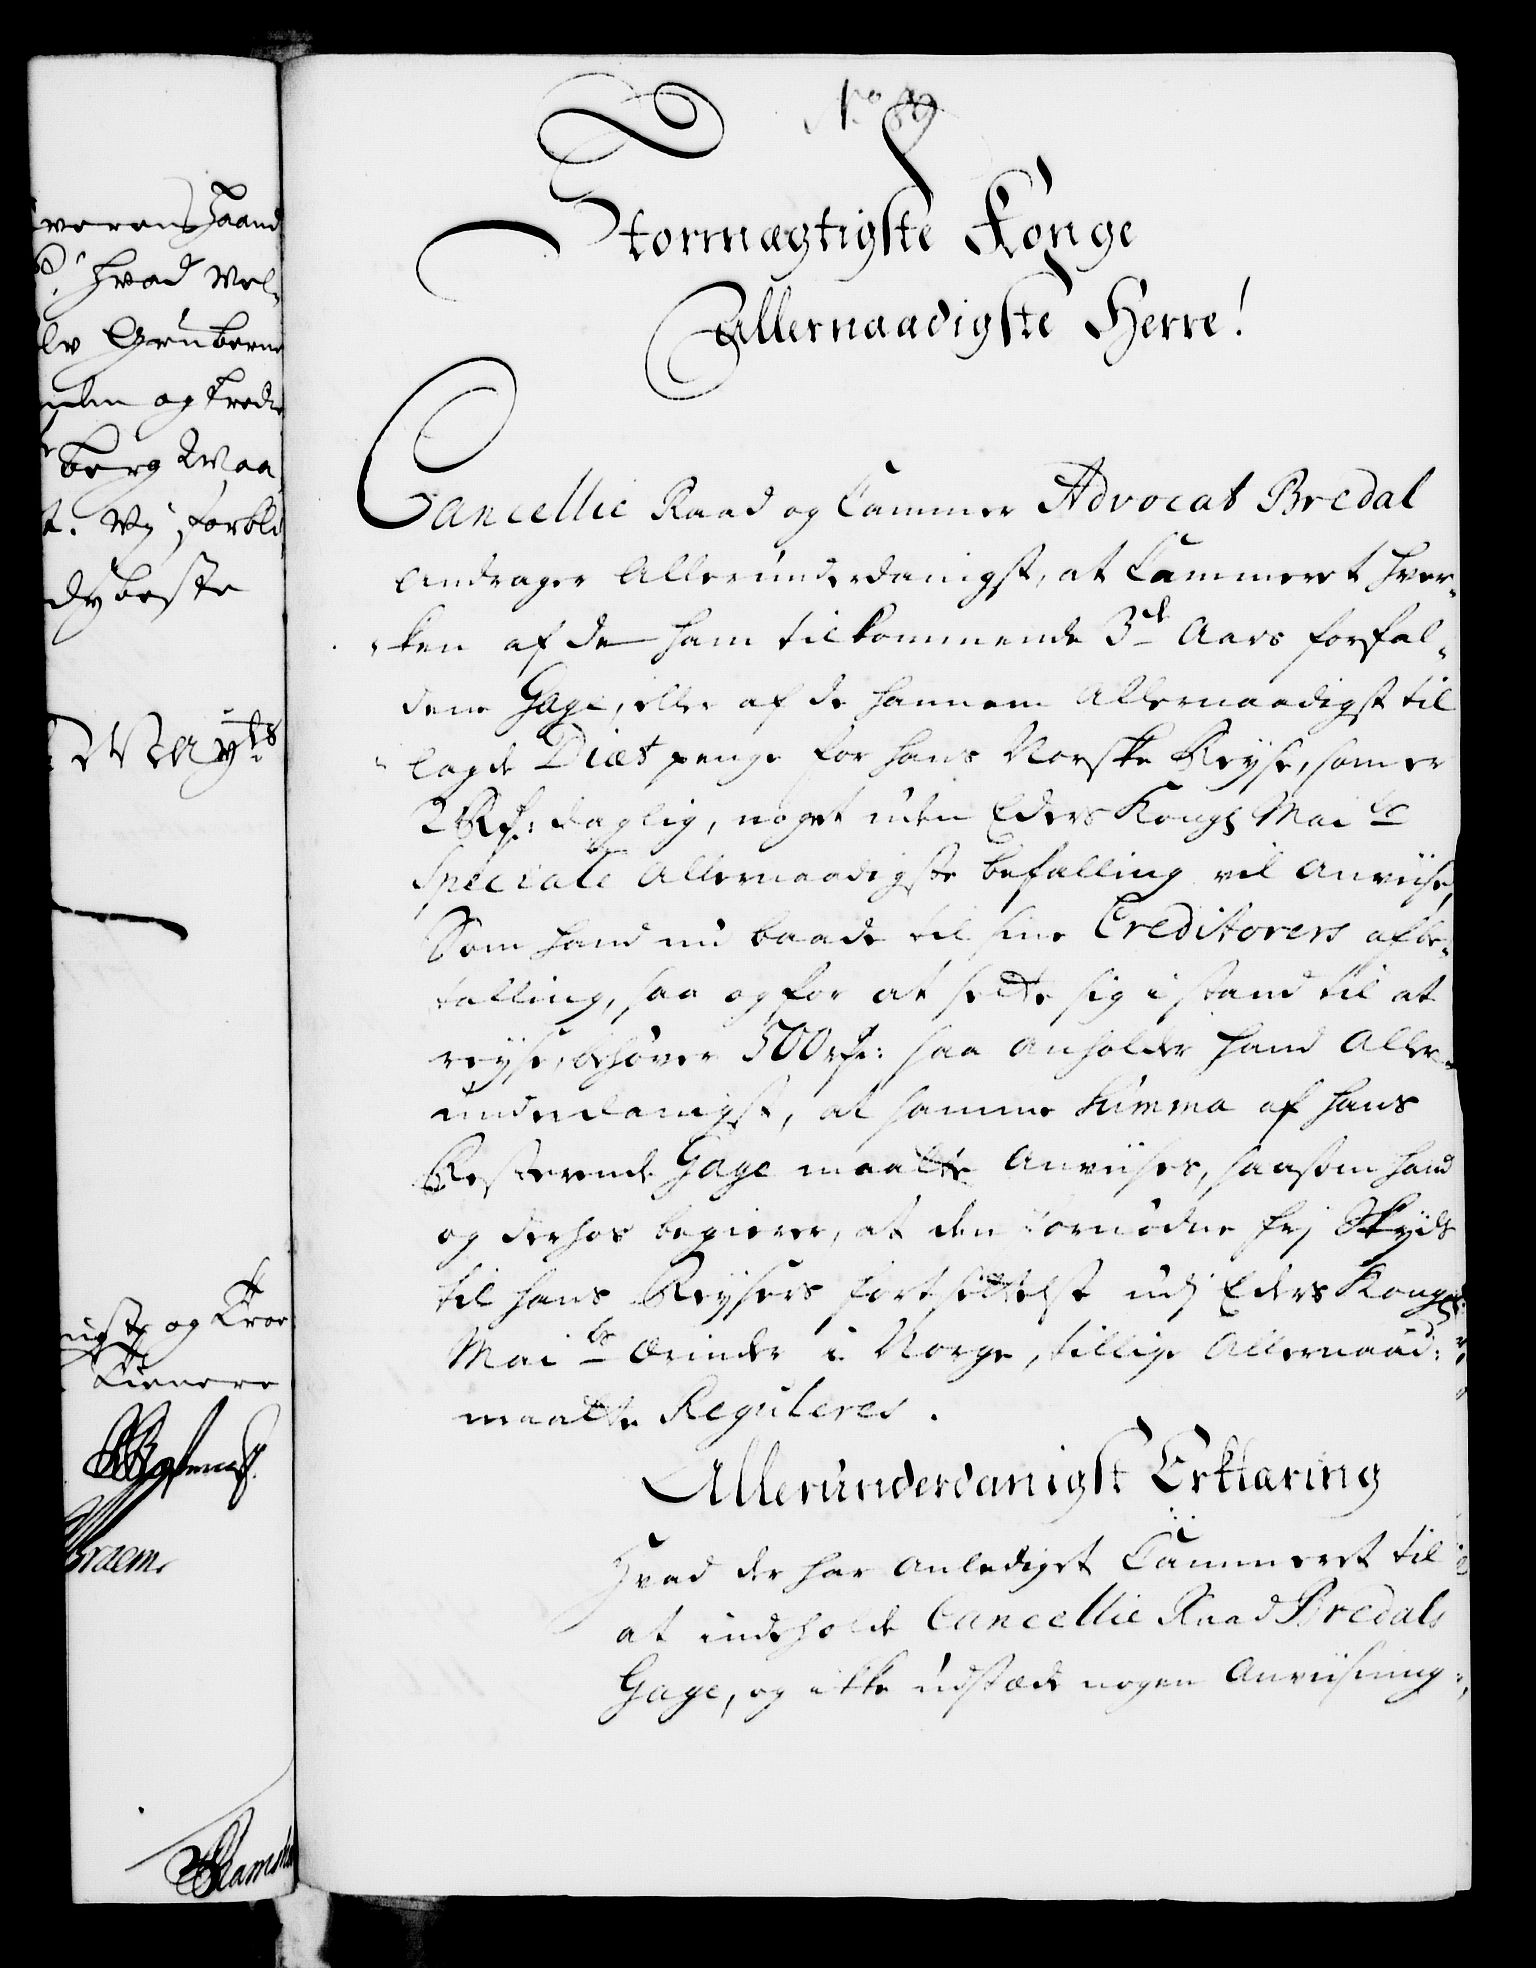 No 89
Stormægtigste Konge
Allernaadigste Herre!
Cancellie Raad og Cammer Advocat Bredal
andrager Allerunderdanigst, at Cammeret hver-
ken af de ham tilkommende 3de Aars forfal-
dene Gage, eller af de hannem Allernaadigst til
lagde Diæt penge for hans Norske Reyse, som er
2 Rdr: daglig, noget uden Eders Kongl Maits
Speciale Allernaadigste befalling vil anviise,
Som hand nu baade til sine Creditorers afbe-
talling, saa og for at sette sig i stand til at
reyse, behøver 500 rdr: saa anholder hand Aller-
underdanigst, at samme Summa af hans
Resterende Gage maatte Anviises, saasom hand
og derhos begierer, at den fornødne frj Skyds
til hans Reysers fortsettelse udj Eders Kongl:
Maits ærinder i Norge, tillige Allernaad:
maatte Reguleres.
Allerunderdanigst Erklaring
Hvad der har anlediget Cammeret til
at indeholde Cancellie Raad Bredals
Gage, og ikke udstæde nogen Anviisning
haand
hvad Vel-
og
berg Maa
t. Vj forbli
dybeste
Mayts
og Troe
Tienere